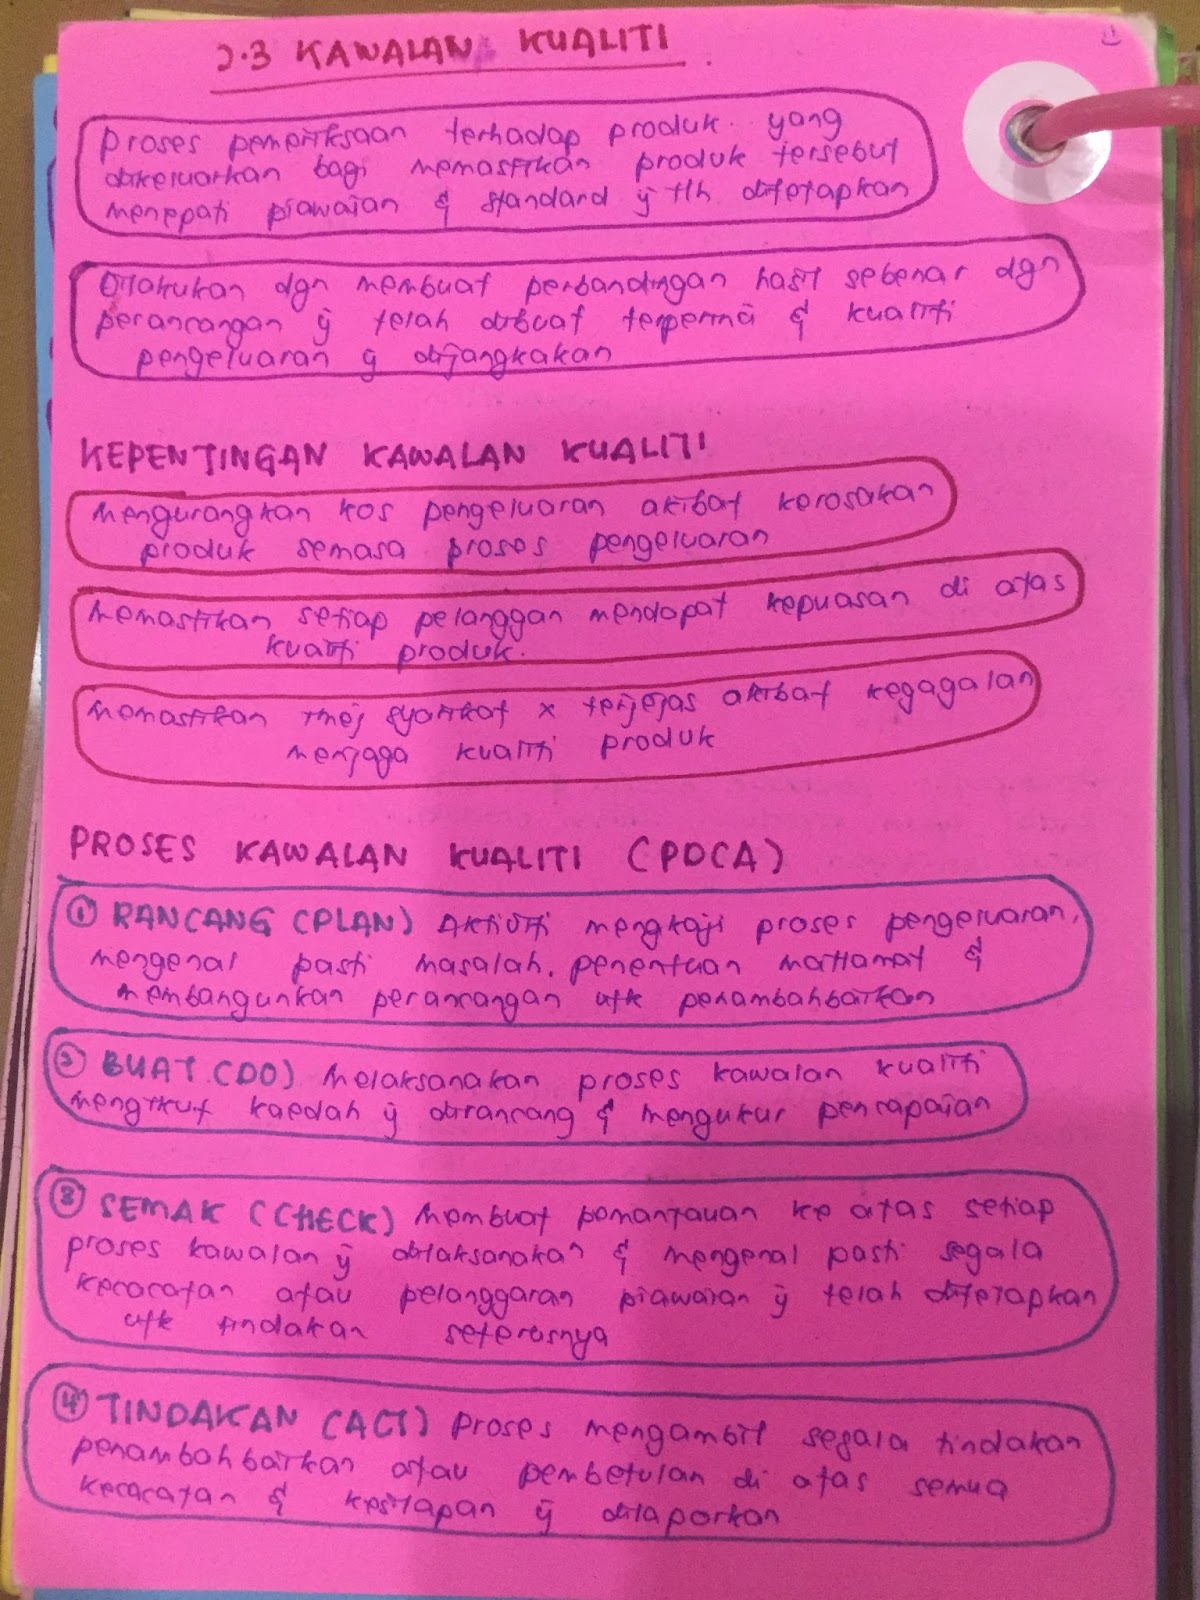 2.3 KAWALAN KUALITI
proses pemeriksaan terhadap produk yang
dikeluarkan bagi memastikan produk tersebut
menepati piawaian & standard ȳ tlh ditetapkan
Dilakukan dgn membuat perbandingan hasil sebenar dgn
perancangan ȳ telah dibuat terperinci & kualiti
pengeluaran ȳ dijangkakan
KEPENTINGAN KAWALAN KUALITI
Mengurangkan kos pengeluaran akibat kerosakan
produk semasa proses pengeluaran
Memastikan setiap pelanggan mendapat kepuasan di atas
kualiti produk.
Memastikan imej syarikat x terjejas akibat kegagalan
menjaga kualiti produk
PROSES KAWALAN KUALITI (PDCA)
① RANCANG (PLAN) Aktiviti mengkaji proses pengeluaran,
mengenal pasti masalah, penentuan matlamat &
membangunkan perancangan utk penambahbaikan
② BUAT (DO) Melaksanakan proses kawalan kualiti
mengikut kaedah ȳ dirancang & mengukur pencapaian
③ SEMAK (CHECK) Membuat pemantauan ke atas setiap
proses kawalan ȳ dilaksanakan & mengenal pasti segala
kecacatan atau pelanggaran piawaian ȳ telah ditetapkan
utk tindakan seterusnya
④ TINDAKAN (ACT) Proses mengambil segala tindakan
penambahbaikan atau pembetulan di atas semua
kecacatan & kesilapan ȳ dilaporkan